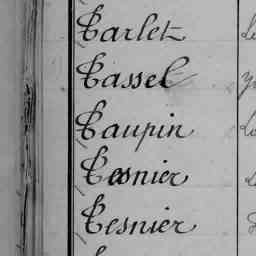 Tarlet
Tassel
Taupin
Tesnier
Tesnier